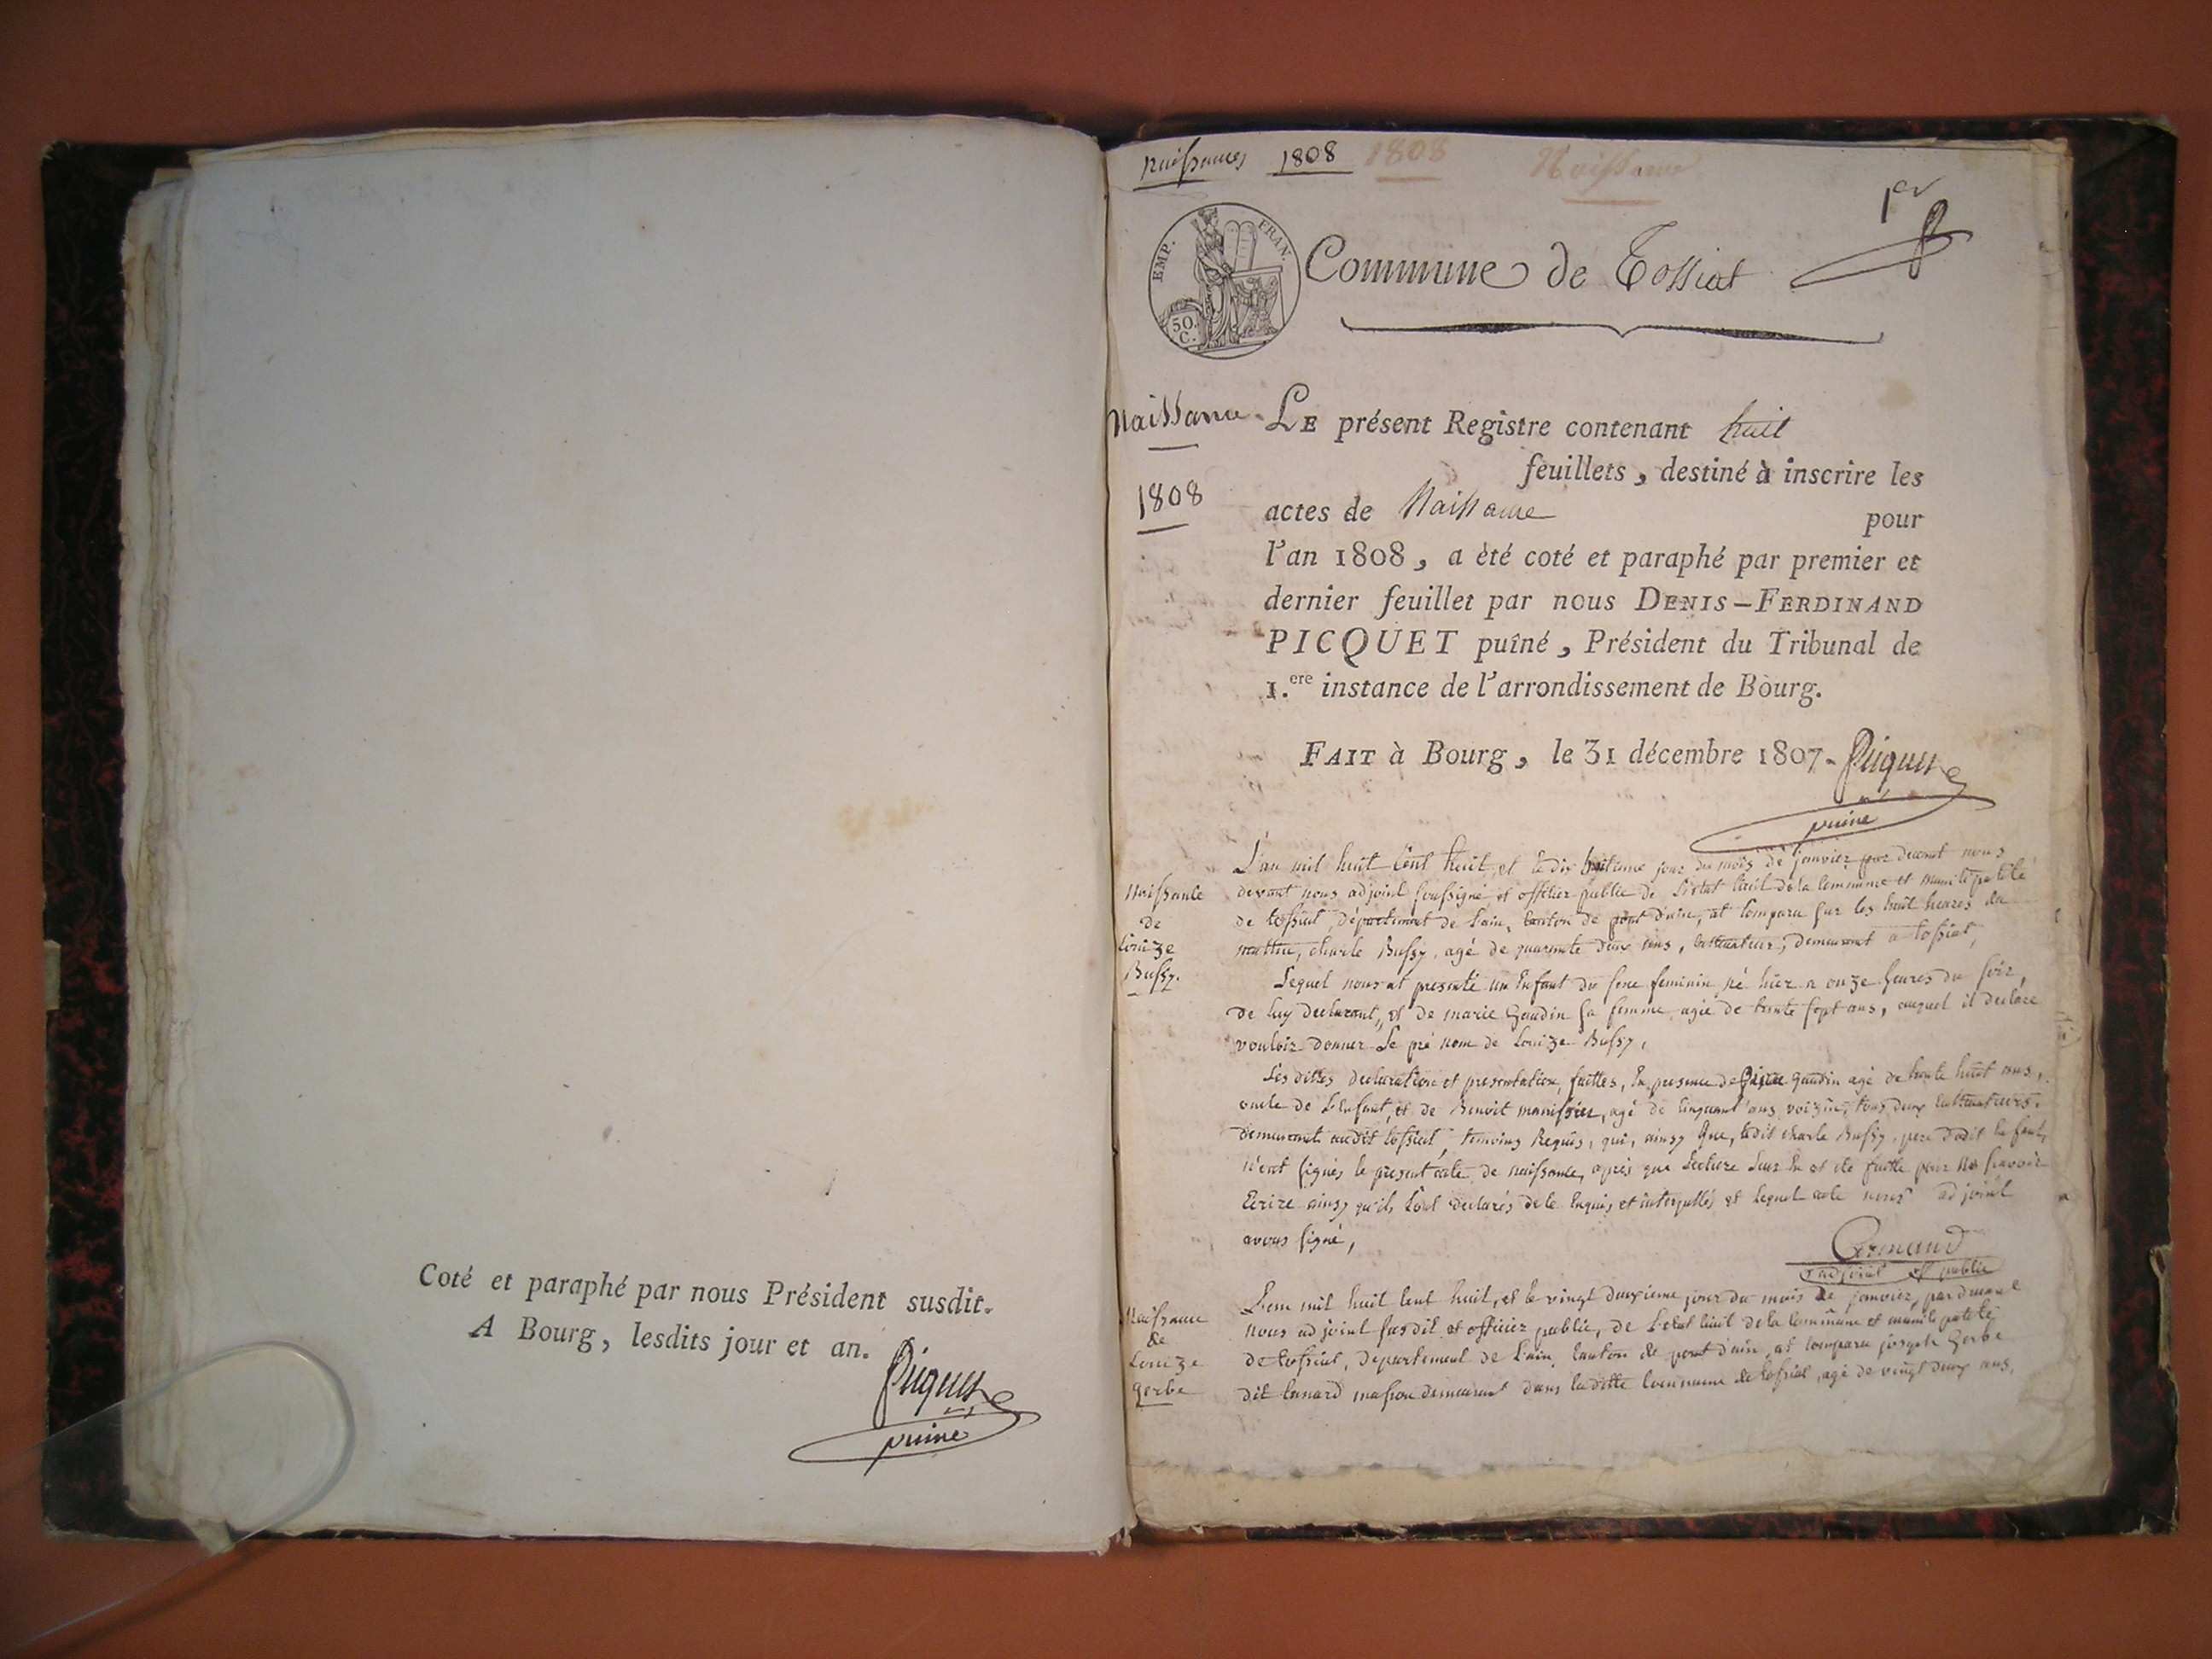 Coté et paraphé par nous Président susdit.
A Bourg, lesdits jour et an.
Picquet
puiné
Naissances 1808 1808 Naissance
1er
EMP. FRAN.
50.
C.
Commune de Tossiat
Naissance
1808
LE présent Registre contenant huit
feuillets, destiné à inscrire les
actes de Naissance pour
l'an 1808, a été coté et paraphé par premier et
dernier feuillet par nous DENIS-FERDINAND
PICQUET puîné, Président du Tribunal de
1.ere instance de l'arrondissement de Bourg.
FAIT à Bourg, le 31 décembre 1807.
Picquet
puiné
Naissance
de
Louize
Bussy.
L'an mil huit cent huit, et le dix huitieme jour du mois de janvier par devant nous
devant nous adjoint soussigné et officier public de l'état civil de la commune et municipalité
de tossiat, département de l'ain, canton de pont d'ain, at comparu sur les huit heures du
mattin, charle Bussy, agé de quarante deux ans, cultivateur, demeurant a tossiat,
Lequel nous at presenté un Enfant du sexe feminin né hier a onze heures du soir,
de luy declarant, et de marie Gaudin sa femme agée de trente sept ans, auquel il declare
vouloir donner le pré nom de Louize Bussy,
Les dittes declaration et presentation, faittes, En presence de Gaudin agé de trente huit ans,
oncle de L'enfant, et de Benoit manissier, agé de cinquant ans voizin, tous deux cultivateurs
demeurants audit tossiat, temoins Requis, qui, ainsy que, ledit charle Bussy, pere dudit Enfant,
n'ont signés le present acte de naissance, après que lecture Leur En et été faitte pour ne scavoir
Ecrire ainsy qu'ils l'ont declarés de le Enquis et interpellés et lequel acte nous adjoint
avons signé,
adjoint off public
Naissance
de
Louize
gerbe
L'an mil huit cent huit, et le vingt deuxieme jour du mois de janvier, par devant
nous adjoint susdit et officier public, de L'etat civil de la commune et municipalité
de tossiat, departement de L'ain, Canton de pont d'ain, at comparu joseph Gerbe
dit masson demeurant dans laditte commune de tossiat, agé de vingt deux ans,